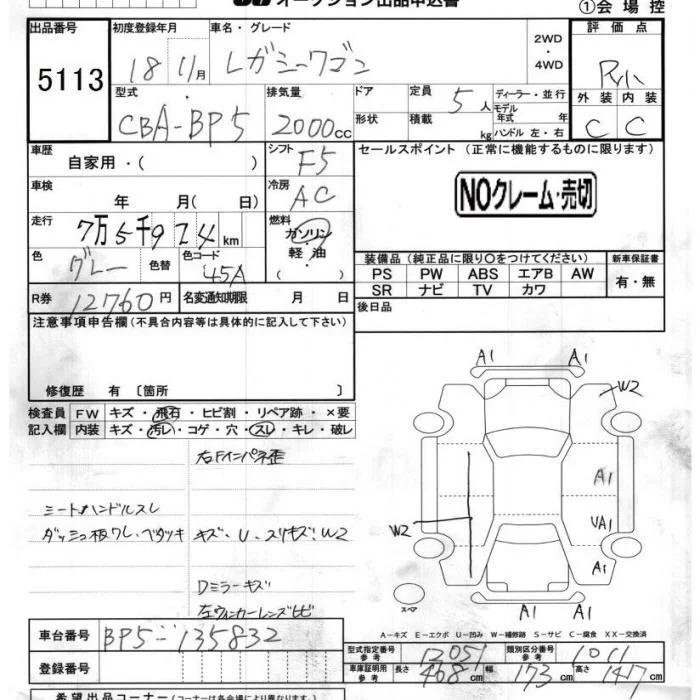 オークション出品申込書
①会場控
出品番号
5113
初度登録年月
18 11月
車名・グレード
レガシーワゴン
2WD
・
4WD
評価点
外装 内装
C C
型式
CBA-BP5
排気量
2000cc
ドア
形状
定員 5人
積載 kg
ディーラー・並行
モデル
年式 年
ハンドル 左・右
車歴
自家用・( )
シフト
F5
セールスポイント (正常に機能するものに限ります)
NOクレーム・売切
車検
年 月( 日)
冷房
AC
走行
7万5千924km
燃料
ガソリン
軽・油
( )
色
グレー
色替
色コード
45A
装備品(純正品に限り〇をつけてください)
新車保証書
PS PW ABS エアB AW
SR ナビ TV カワ
有・無
R券 12760円
名変通知期限 月 日
後日品
注意事項申告欄(不具合内容等は具体的に記入して下さい)
修復歴 有 〔箇所 〕
検査員
記入欄
FW キズ・飛石・ヒビ割・リペア跡・×要
内装 キズ・汚レ・コゲ・穴・スレ・キレ・破レ
右Fインパネ歪
シートハンドルスレ
ダッシュ板ワレ・ベタツキ
キズ・U・スリキズ・W2
Dミラーキズ
左ウィンカーレンズヒビ
A1 A1
W2
A1
UA1
W2
A1
A1 A1
スペア
A-キズ E-エクボ U-凹み W-補修跡 S-サビ C-腐食 XX-交換済
車台番号
BP5-135832
登録番号
型式指定番号
参考
12051
類別区分番号
参考
1011
車庫証明用
参考
長さ 468cm 幅 173cm 高さ 147cm
希望出品コーナー(コーナーは各会場により異なります)